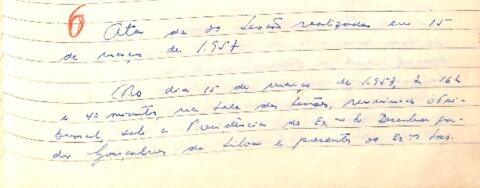 6 Ata da 20 Sessão realizada em 15
de março de 1.957
No dia 15 de março de 1.957, às 16 h
e 40 minutos na Sala das Sessões, reuniu-se o Tri-
bunal, sob a Presidência do Exmo Sr. Desembarga-
dor Gonçalves da Silva e presentes os Exmos Srs.